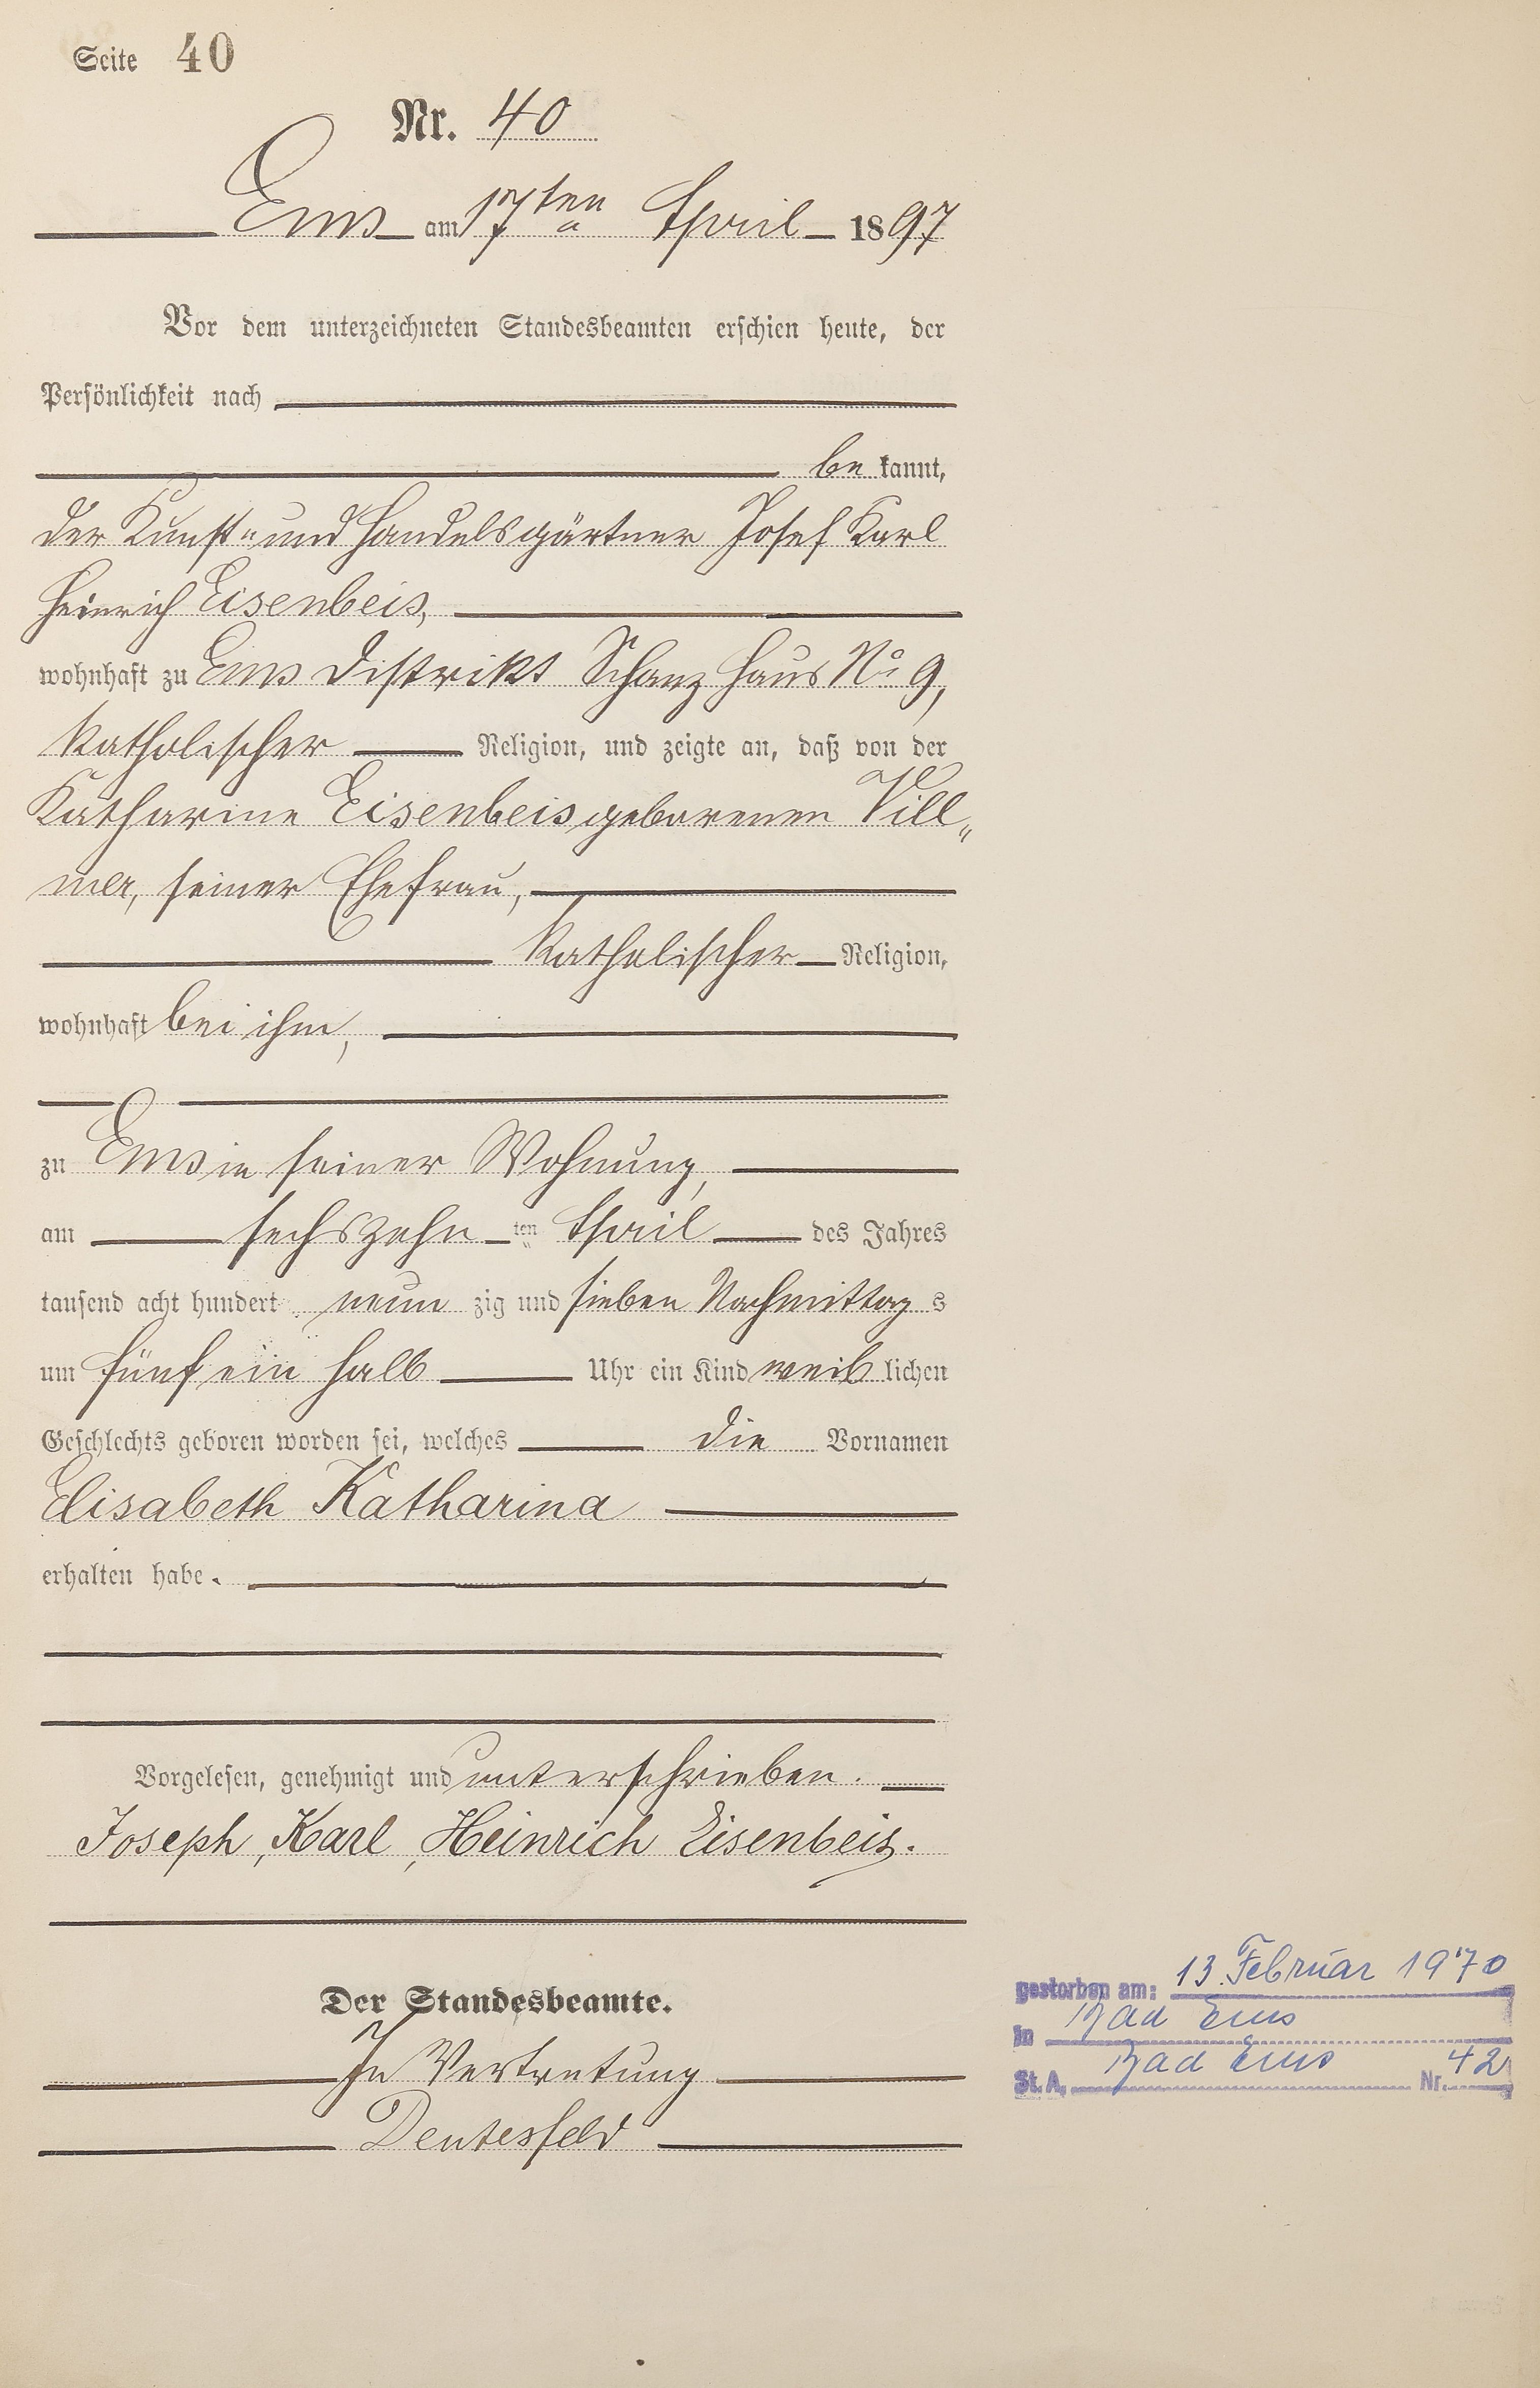 Seite 40
Nr. 40
Ems am 17ten April 1897
Vor dem unterzeichneten Standesbeamten erschien heute, der
Persönlichkeit nach
be kannt,
der Kunst- und Handelsgärtner Josef Karl
Heinrich Eisenbeis,
wohnhaft zu Ems Distrikt Schanz Haus No 9,
katholischer Religion, und zeigte an, daß von der
Katharine Eisenbeis geborenen Vill-
mer, seiner Ehefrau,
katholischer Religion,
wohnhaft bei ihm,
zu Ems in seiner Wohnung,
am sechszehn ten April des Jahres
tausend acht hundert neun zig und sieben Nachmittag s
um fünf ein halb Uhr ein Kind weib lichen
Geschlechts geboren worden sei, welches die Vornamen
Elisabeth Katharina
erhalten habe.
Vorgelesen, genehmigt und unterschrieben.
Joseph, Karl, Heinrich Eisenbeis.
Der Standesbeamte.
In Vertretung
gestorben am: 13. Februar 1970
in Bad Ems
St. A. Bad Ems Nr. 42